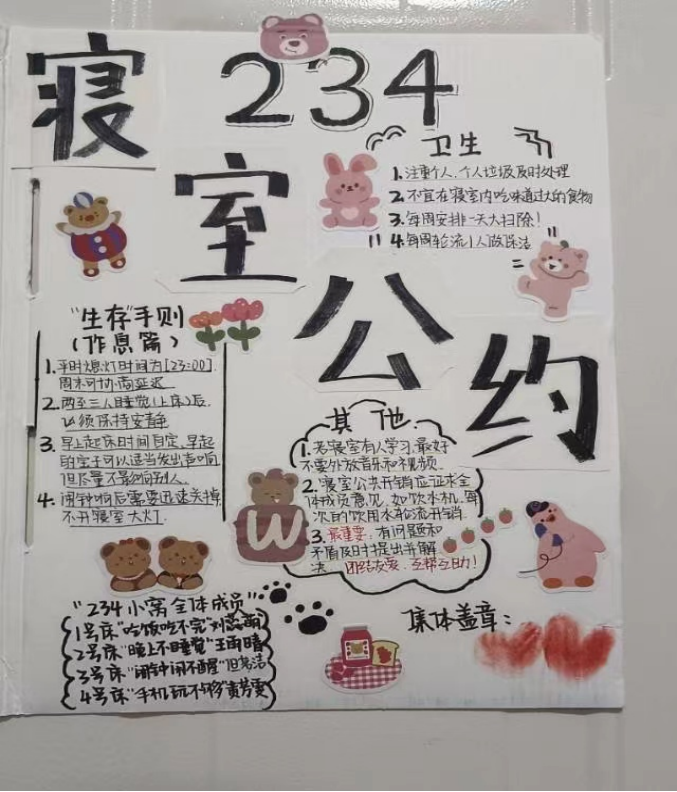 234
寝室公约
卫生
1.注重个人、个人垃圾及时处理
2.不宜在寝室内吃味道过大的食物
3.每周安排一天大扫除!
4.每周轮流1人做保洁
"生存"手则
(作息篇)
1.平时熄灯时间为[23:00].
周末可协商延迟
2.两至三人睡觉(上床)后
必须保持安静
3.早上起床时间自定,早起
的室子可以适当发出声响
但尽量不影响别人.
4.闹钟响后需要迅速关掉
不开寝室大灯.
其他
1.若寝室有人学习,最好
不要外放音乐和视频.
2.寝室公共开销应征求全
体成员意见,如饮水机,每
次的饮用水轮流开销.
3.最重要:有问题和
矛盾及时提出并解
决.团结友爱,互帮互助!
W
"234小窝全体成员"
1号床"吃饭吃不完"刘
2号床"晚上不睡觉"王雨晴
3号床"闹钟闹不醒"洁
4号床"手机玩不够"黄芳雯
集体盖章: